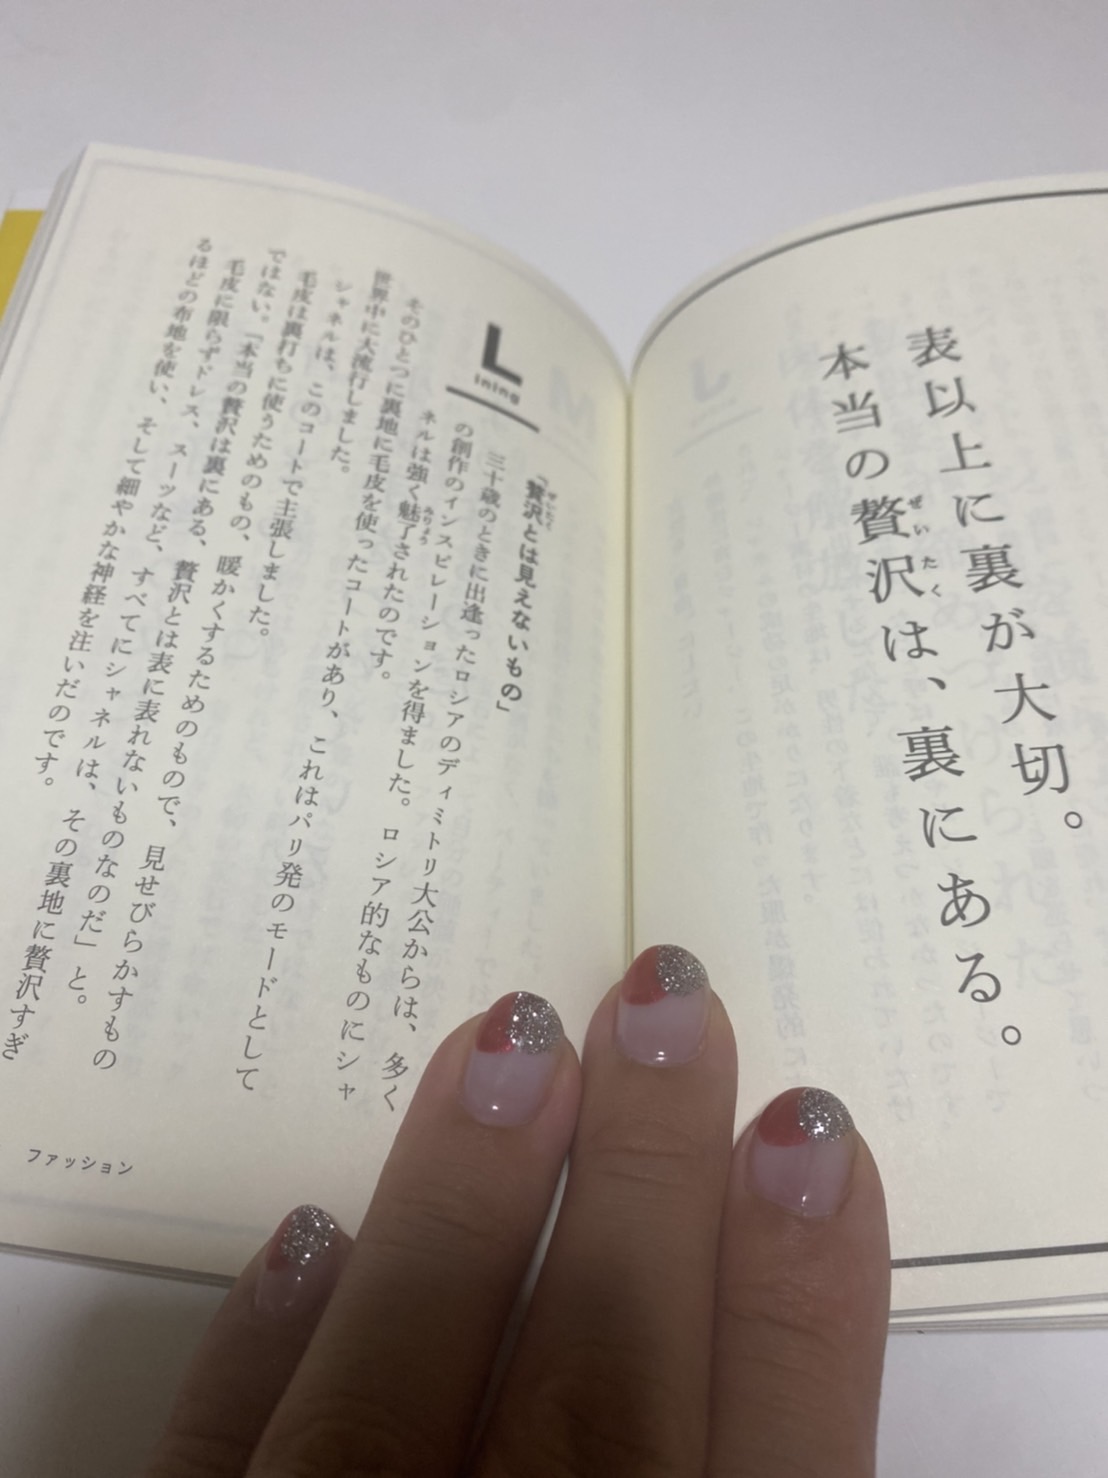 表以上に裏が大切。
本当の贅沢は、裏にある。
ぜいたく
Lining
「贅沢とは見えないもの」
ぜいたく
三十歳のときに出逢ったロシアのディミトリ大公からは、多く
の創作のインスピレーションを得ました。ロシア的なものにシャ
ネルは強く魅了されたのです。
みりょう
そのひとつに裏地に毛皮を使ったコートがあり、これはパリ発のモードとして
世界中に大流行しました。
シャネルは、このコートで主張しました。
毛皮は裏打ちに使うためのもの、暖かくするためのもので、見せびらかすもの
ではない。「本当の贅沢は裏にある、贅沢とは表に表れないものなのだ」と。
毛皮に限らずドレス、スーツなど、すべてにシャネルは、その裏地に贅沢すぎ
るほどの布地を使い、そして細やかな神経を注いだのです。
ファッション